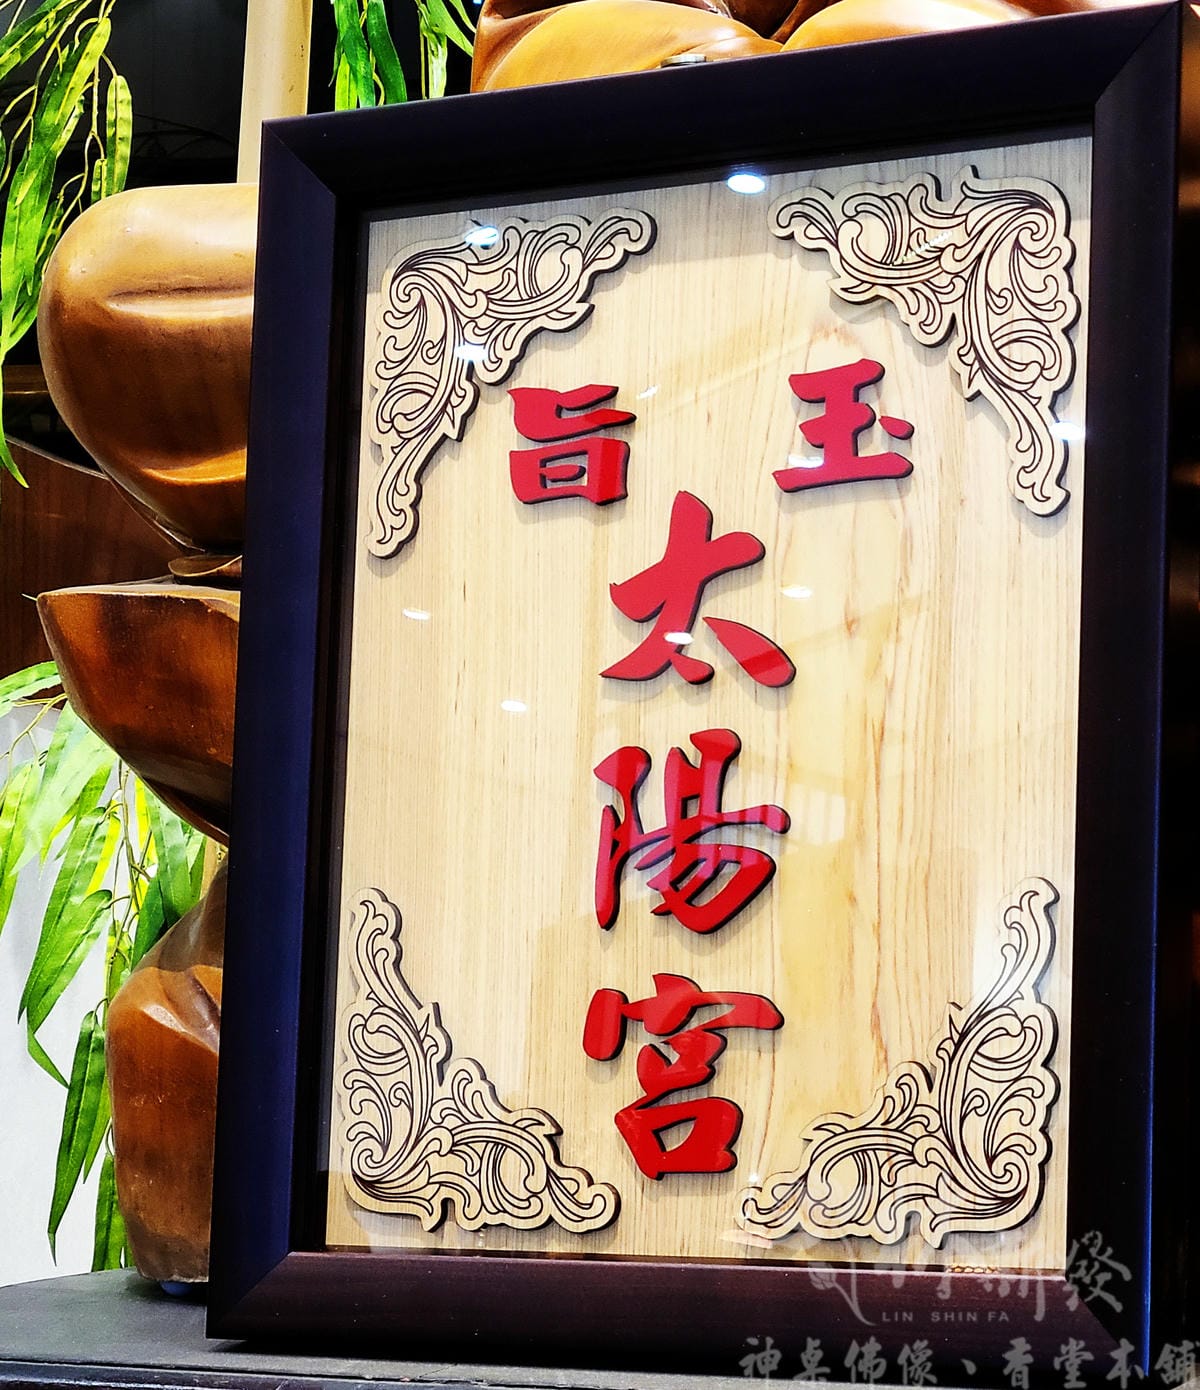 玉旨
太陽宮
林新發
LIN SHIN FA
神桌佛像、香堂本舖